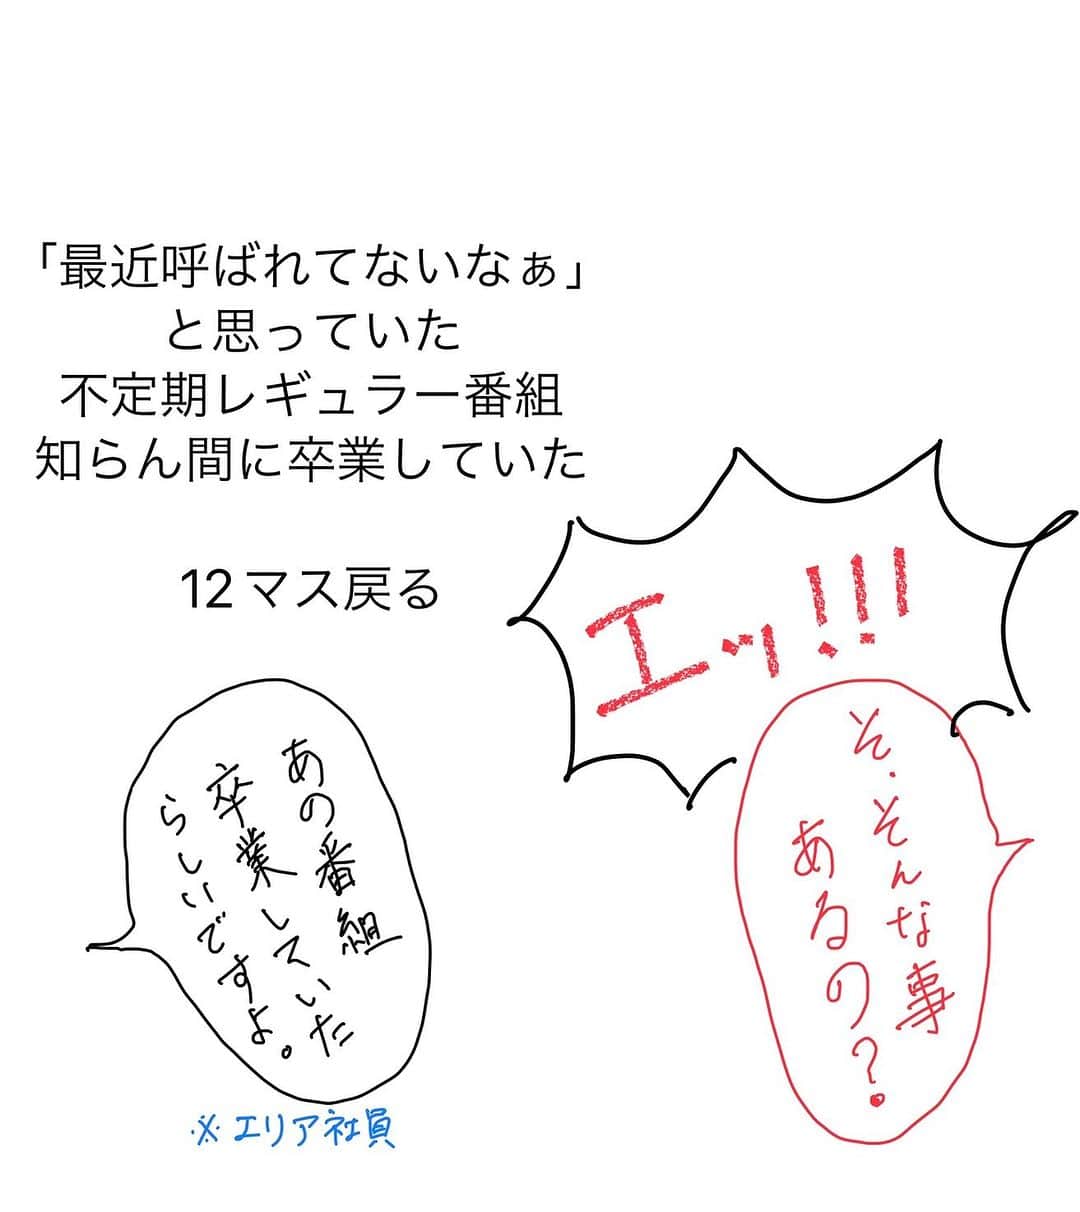 「最近呼ばれてないなぁ」
と思っていた
不定期レギュラー番組
知らん間に卒業していた
12マス戻る
エッ!!!
そ.そんな事
あるの?
あの番組
卒業していた
らしいですよ。
※エリア社員